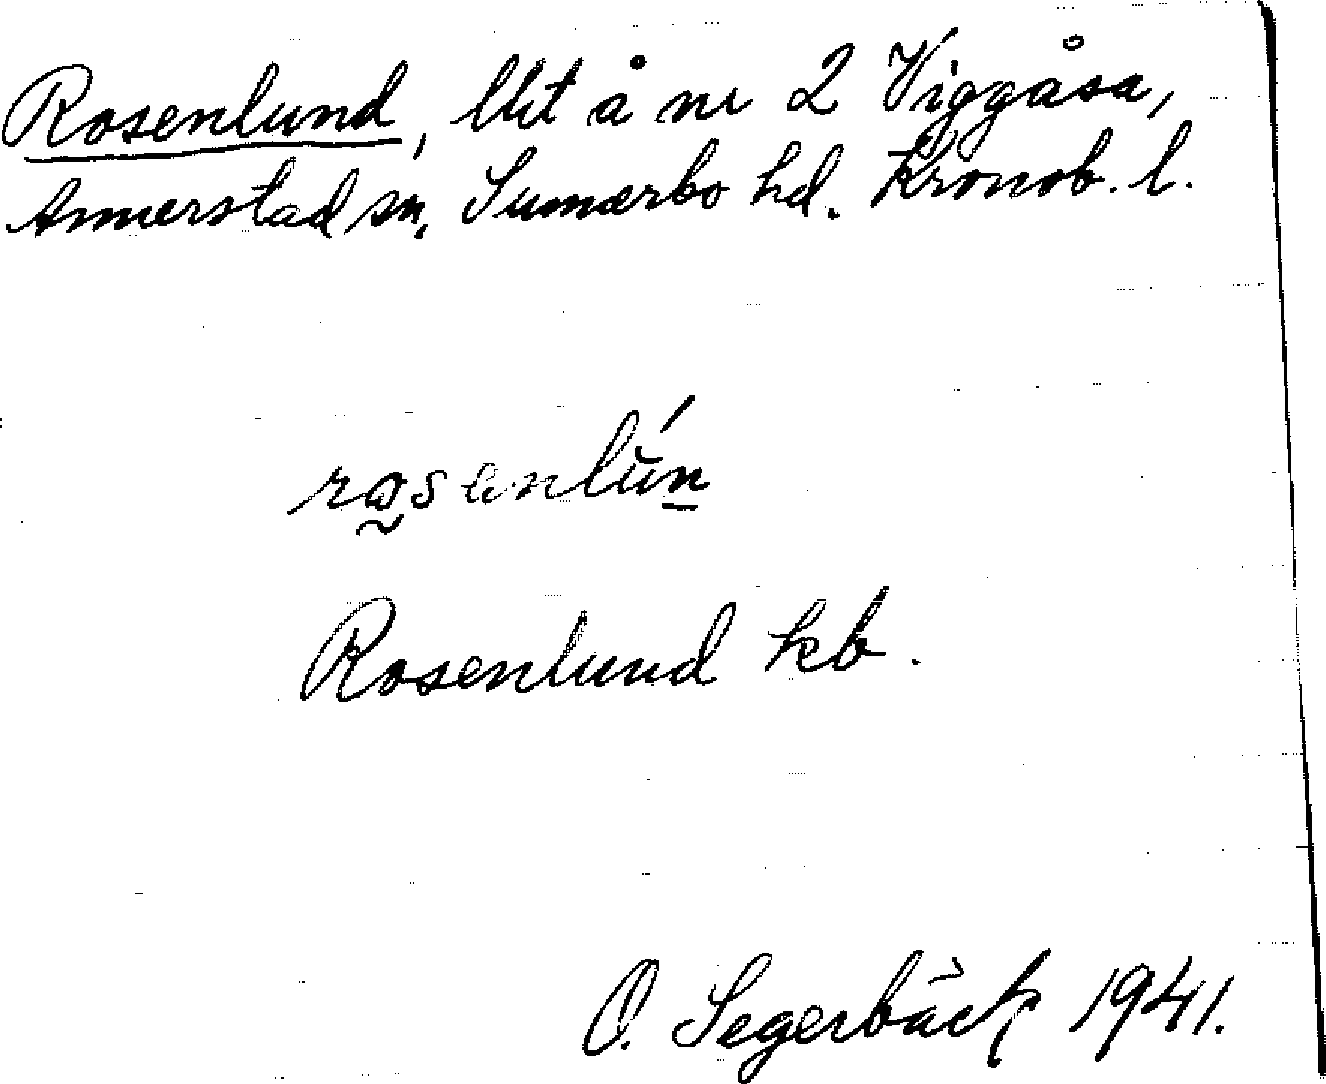 Rosenlund, lht å nr 2 Viggåsa,
Annerstad sn, Sunnerbo hd. Kronob. l.
rosenlún
Rosenlund kb.
O. Segerbäck 1941.